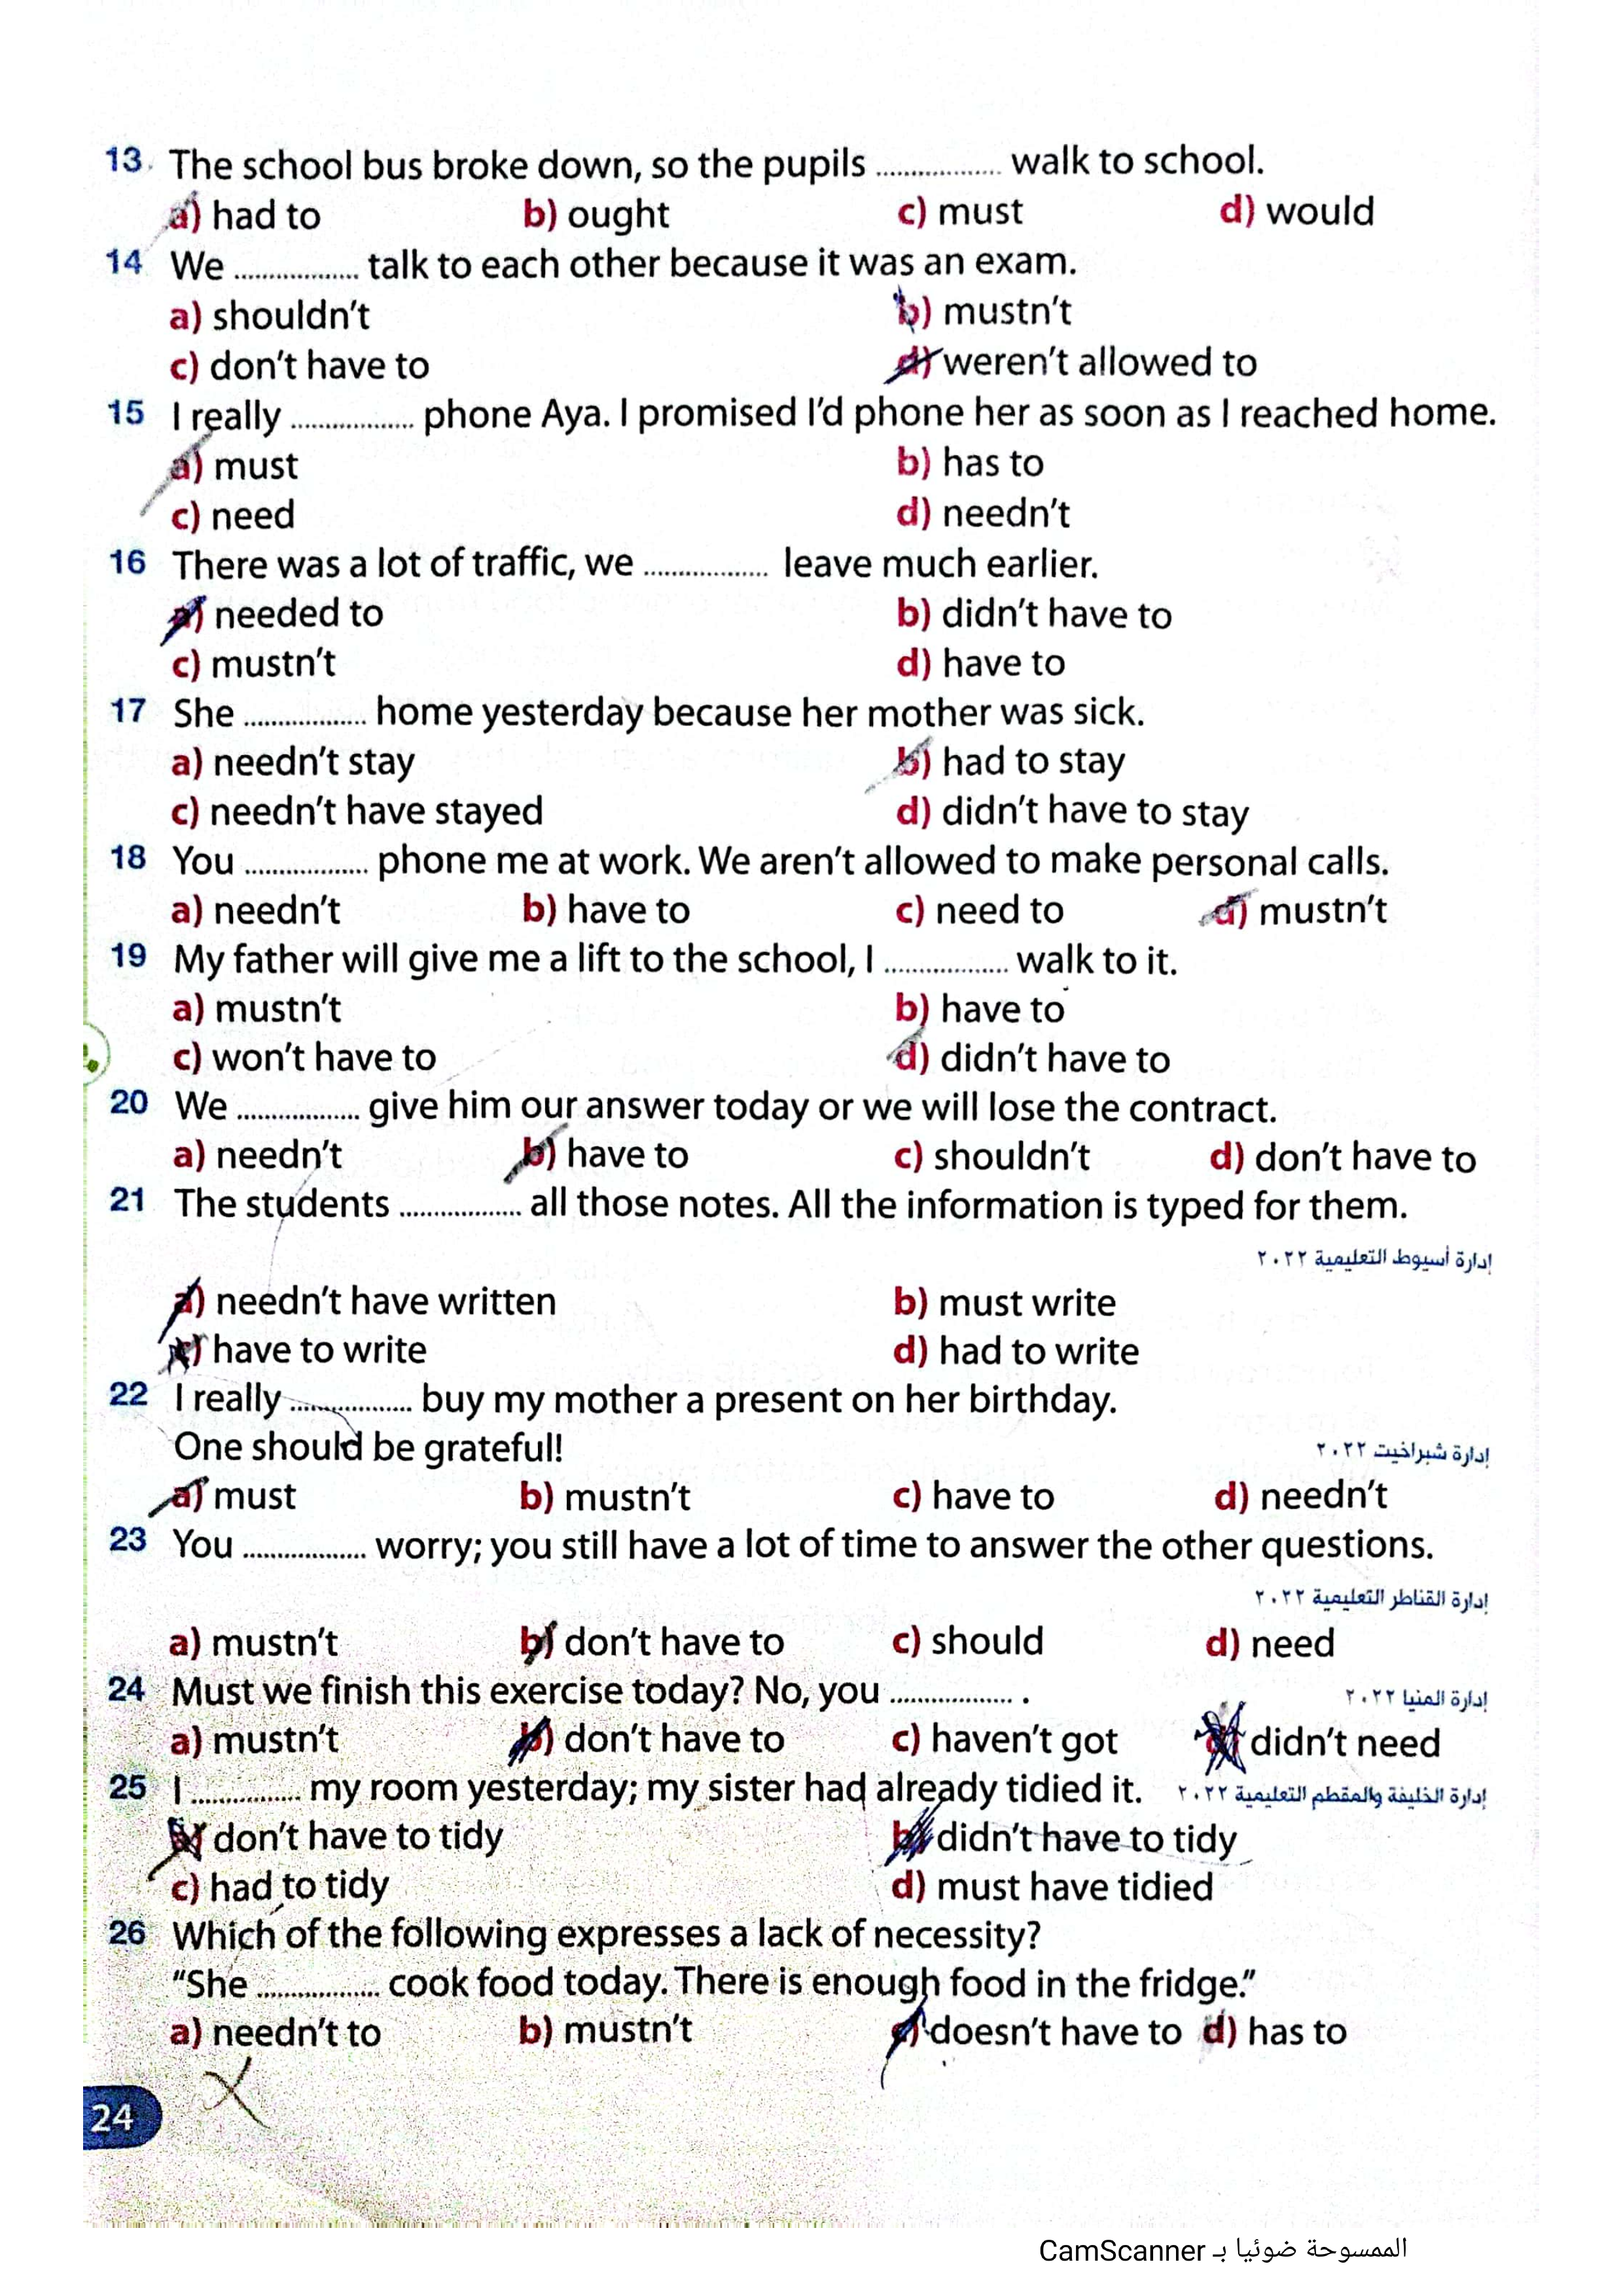 13. The school bus broke down, so the pupils .................. walk to school.
a) had to b) ought c) must d) would
14 We .................. talk to each other because it was an exam.
a) shouldn't b) mustn't
c) don't have to d) weren't allowed to
15 I really .................. phone Aya. I promised I'd phone her as soon as I reached home.
a) must b) has to
c) need d) needn't
16 There was a lot of traffic, we .................. leave much earlier.
a) needed to b) didn't have to
c) mustn't d) have to
17 She .................. home yesterday because her mother was sick.
a) needn't stay b) had to stay
c) needn't have stayed d) didn't have to stay
18 You .................. phone me at work. We aren't allowed to make personal calls.
a) needn't b) have to c) need to d) mustn't
19 My father will give me a lift to the school, I .................. walk to it.
a) mustn't b) have to
c) won't have to d) didn't have to
20 We .................. give him our answer today or we will lose the contract.
a) needn't b) have to c) shouldn't d) don't have to
21 The students .................. all those notes. All the information is typed for them.
إدارة أسيوط التعليمية ٢٠٢٢
a) needn't have written b) must write
c) have to write d) had to write
22 I really .................. buy my mother a present on her birthday.
One should be grateful! إدارة شبراخيت ٢٠٢٢
a) must b) mustn't c) have to d) needn't
23 You .................. worry; you still have a lot of time to answer the other questions.
إدارة القناطر التعليمية ٢٠٢٢
a) mustn't b) don't have to c) should d) need
24 Must we finish this exercise today? No, you .................. . إدارة المنيا ٢٠٢٢
a) mustn't b) don't have to c) haven't got d) didn't need
25 I ................ my room yesterday; my sister had already tidied it. إدارة الخليفة والمقطم التعليمية ٢٠٢٢
a) don't have to tidy b) didn't have to tidy
c) had to tidy d) must have tidied
26 Which of the following expresses a lack of necessity?
"She .................. cook food today. There is enough food in the fridge."
a) needn't to b) mustn't c) doesn't have to d) has to
24
الممسوحة ضوئيا بـ CamScanner